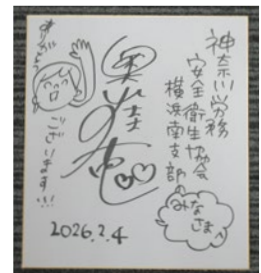 神奈川労務
安全衛生協会
横浜南支部の
みなさまへ
ありがとう
ございます!!!
2026.2.4